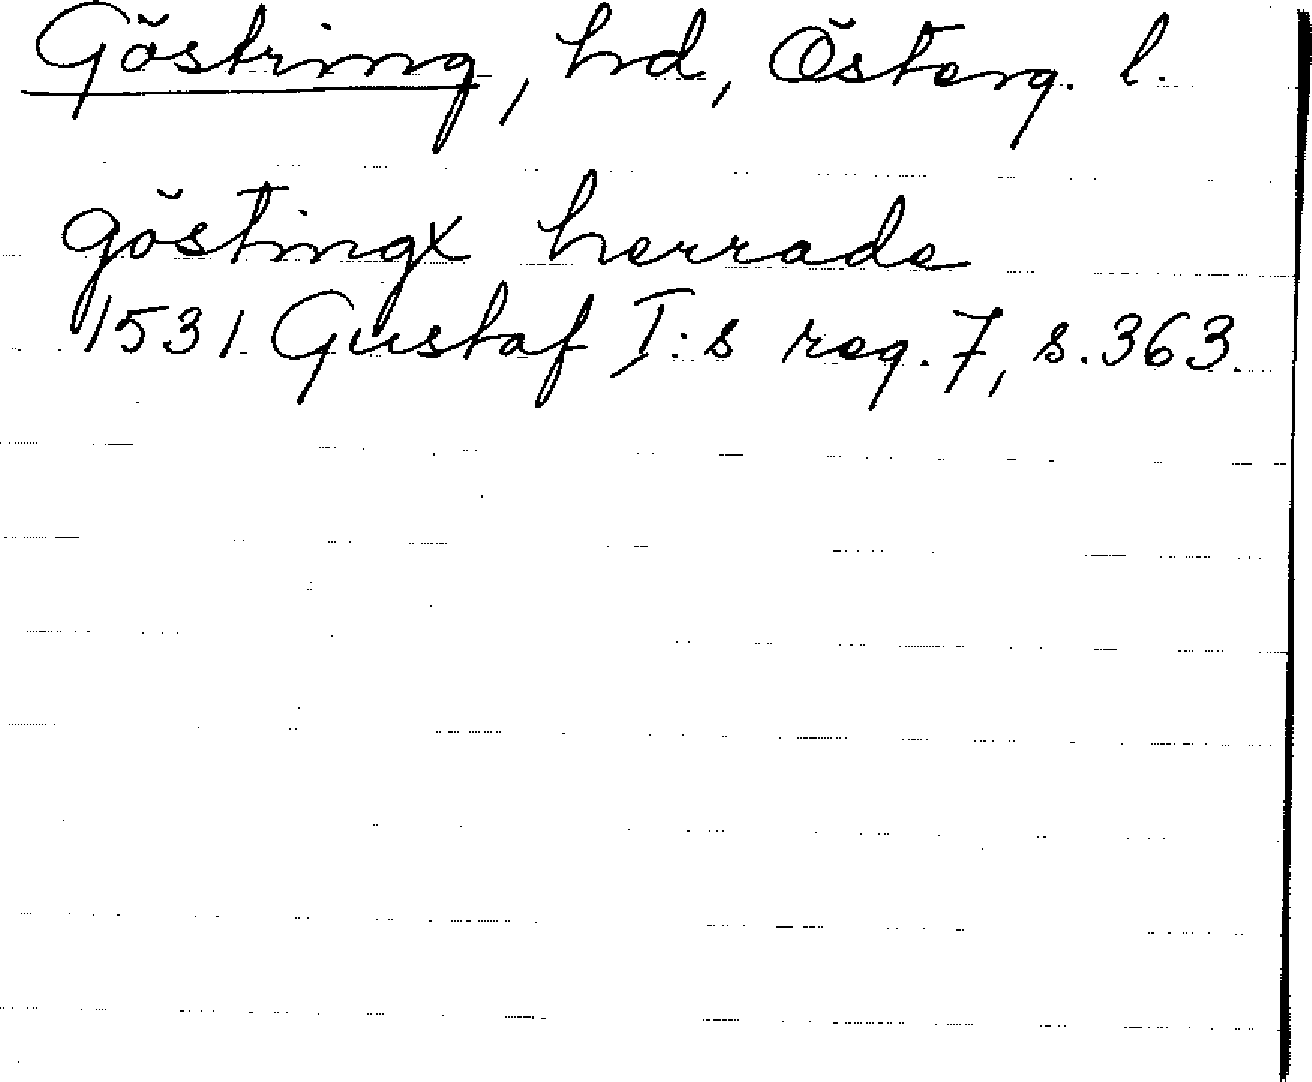 Göstring, hd, Österg. l.
göstingx herrade
1531 Gustaf I:s reg. 7, s. 363.